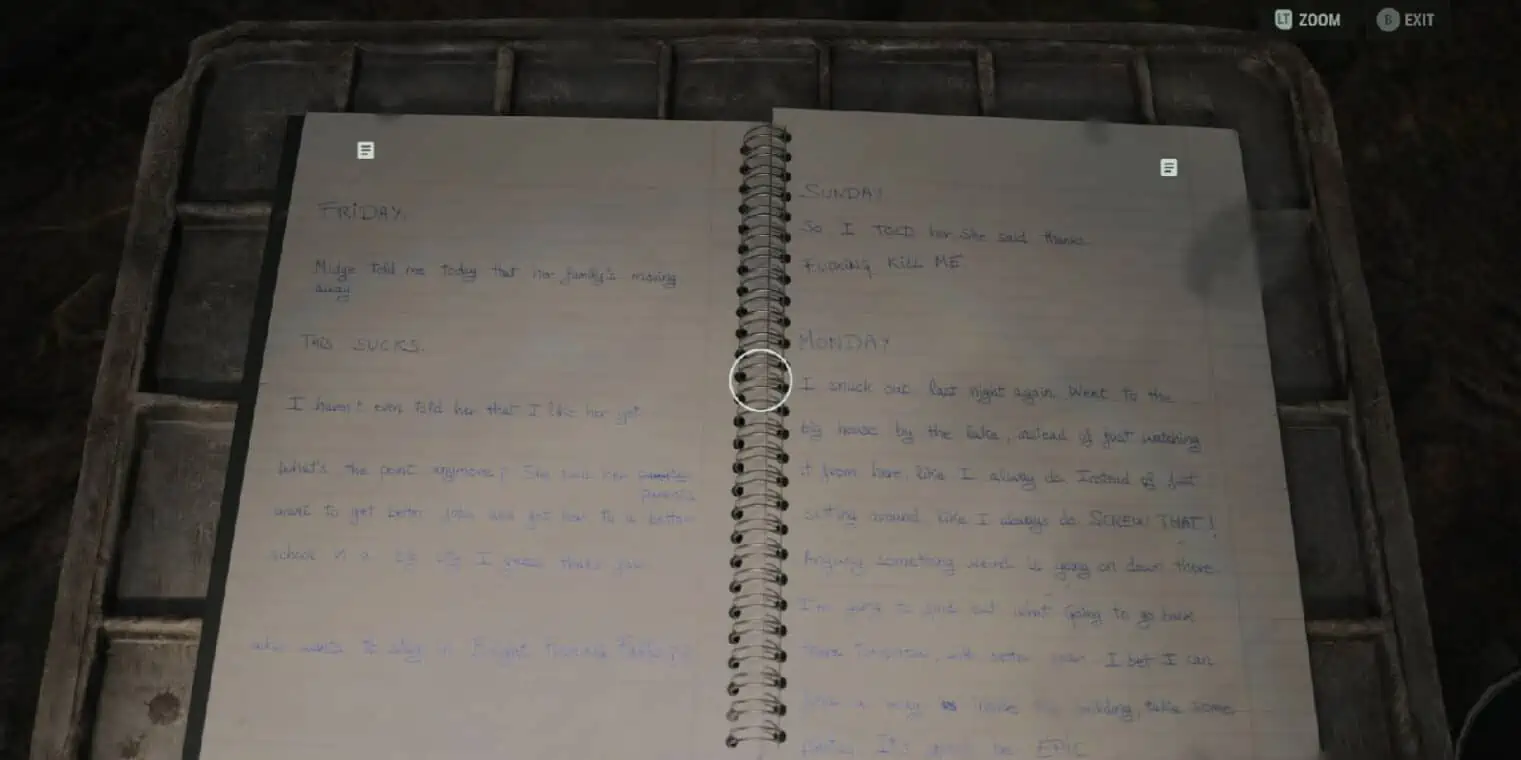 LT ZOOM
B EXIT
FRIDAY.
Midge told me today that her family's moving
away
THIS SUCKS.
I haven't even told her that I like her yet
What's the point anymore? She said her
parents
want to get better jobs and get her to a better
school in a big city I guess that's fair
who wants to stay in Bright
SUNDAY
So I TOLD her. She said thanks.
FUCKING KILL ME
MONDAY
I snuck out last night again. Went to the
big house by the lake, instead of just watching
it from here, like I always do. Instead of just
sitting around like I always do. SCREW THAT!
Anyway something weird is going on down there
I'm going to find out what. Going to go back
there tomorrow, I bet I can
find a way the building, take some
It's gonna be EPIC